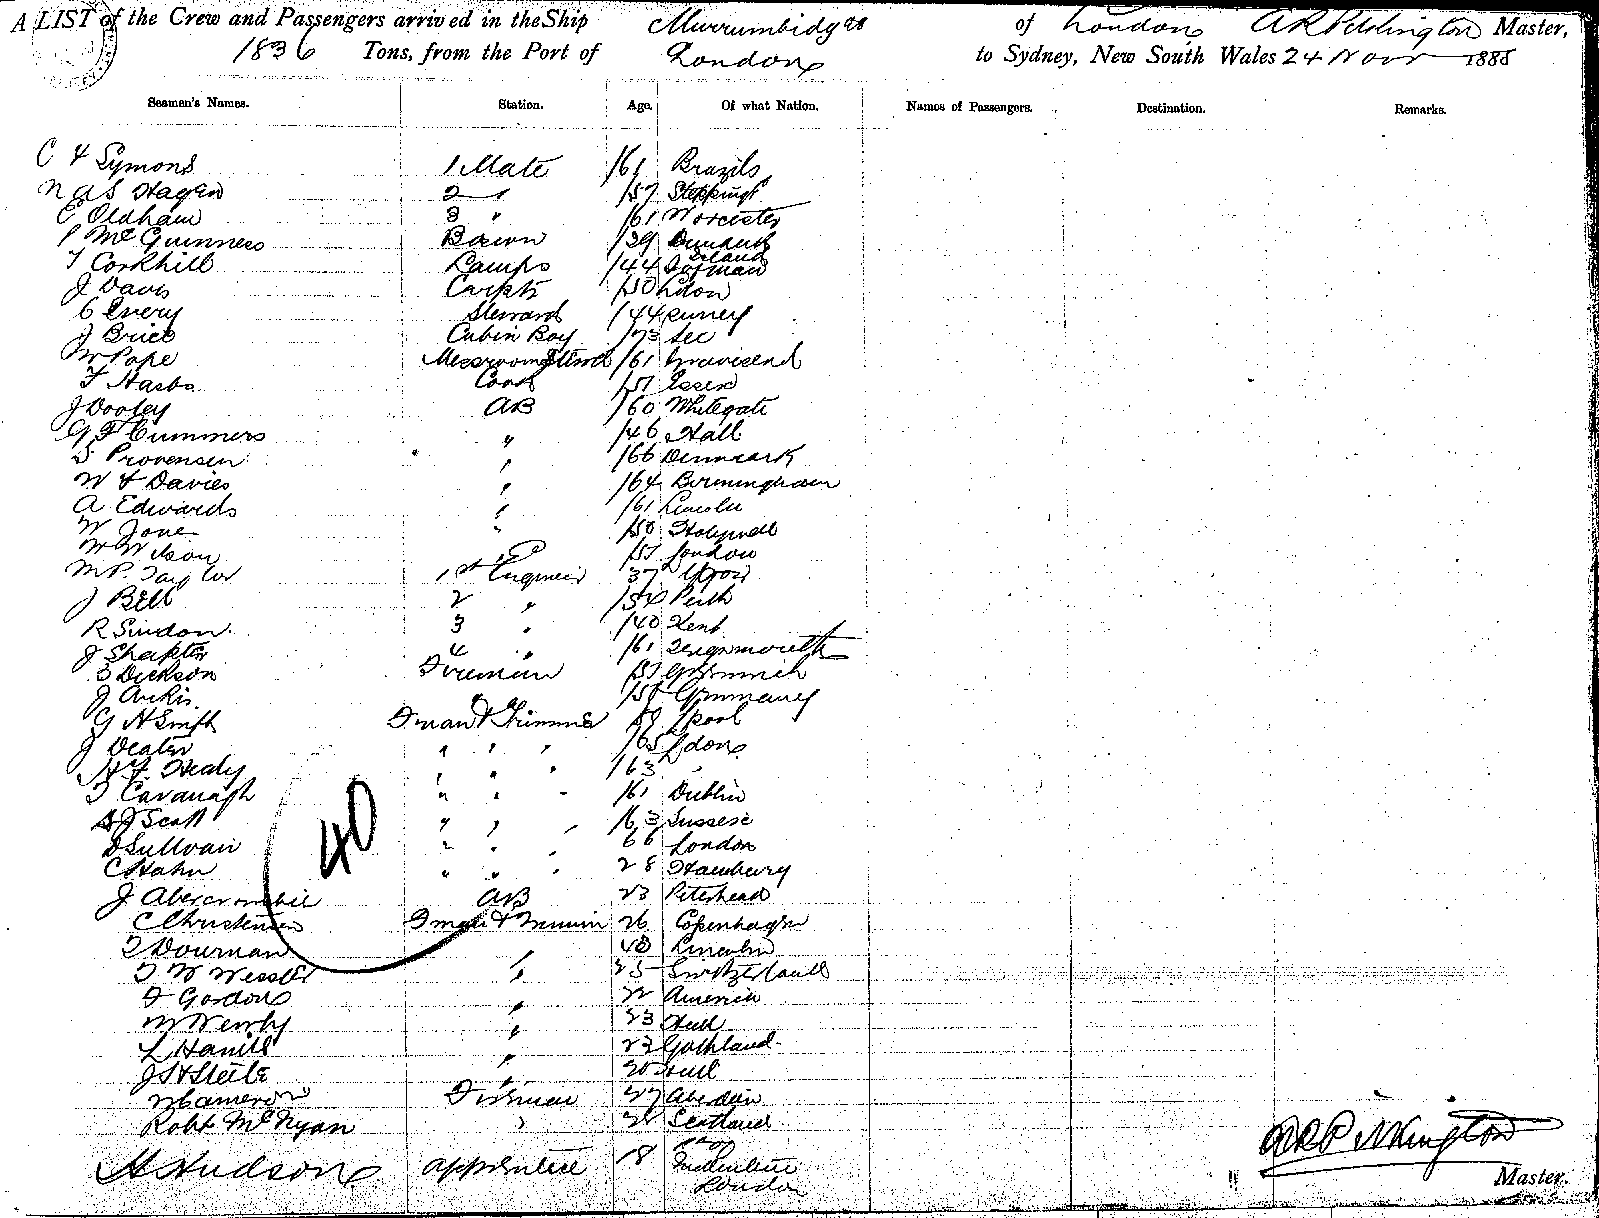 A LIST of the Crew and Passengers arrived in the Ship Murrumbidgee of London, A R Pilkington Master,
1836 Tons, from the Port of London to Sydney, New South Wales 24 Novr 1885
Seamen's Names. Station. Age. Of what Nation. Names of Passengers. Destination. Remarks.
Symons 1 Mate /61 Brazils
Hagen 2 " /57
C Oldham 3 " /61 Worcester
P McGuinness Bosun /39
T Corkhill Lamps /44 Isle and of man
J Davis Carptr /50 Ldon
C Every Steward /44 Surrey
J Brice Cabin Boy /73
W Pope Messroom Stewd /61 Gravesend
F Cook /57 Essex
J Dooley AB /60 Whitegate
G F Cummers " /46 Hull
S Provensen " /66 Denmark
W H Davies " /64 Birmingham
A Edwards " /61 Lincoln
W Jone " /50 Holywell
W Wilson " /57 London
M P Taylor 1st Engineer 37
J Bell 2 " /54 Perth
R Sindon 3 " /40 Kent
J Shapter 4 " /61 Teignmouth
Dickson Fireman /57 Greenwich
J /58 Germany
G H Smith Fman & Trimmer /59 Lpool
J Deater " " " /65 Ldon
H F Healy " " " /63 "
T Cavanagh " " " /61 Dublin
Scott " " " /63 Sussex
D Sullivan " " " 66 London
C Hahn " " " 28 Hamburg
40
J Abercrombie AB 23 Peterhead
C Christensen Fman & Trimmer 26 Copenhagen
Dowrnan " 40 Lincoln
W Wessler " 25 Switzerland
F Gordon " 22 America
M Newby " 23 Hull
L Hamill " 23 Gothland
J H Steele " 20 Hull
N Cameron Fireman 27 Aberdeen
Robt McNyan " Scotland
H Hudson apprentice 18
London
A R Pilkington
Master.